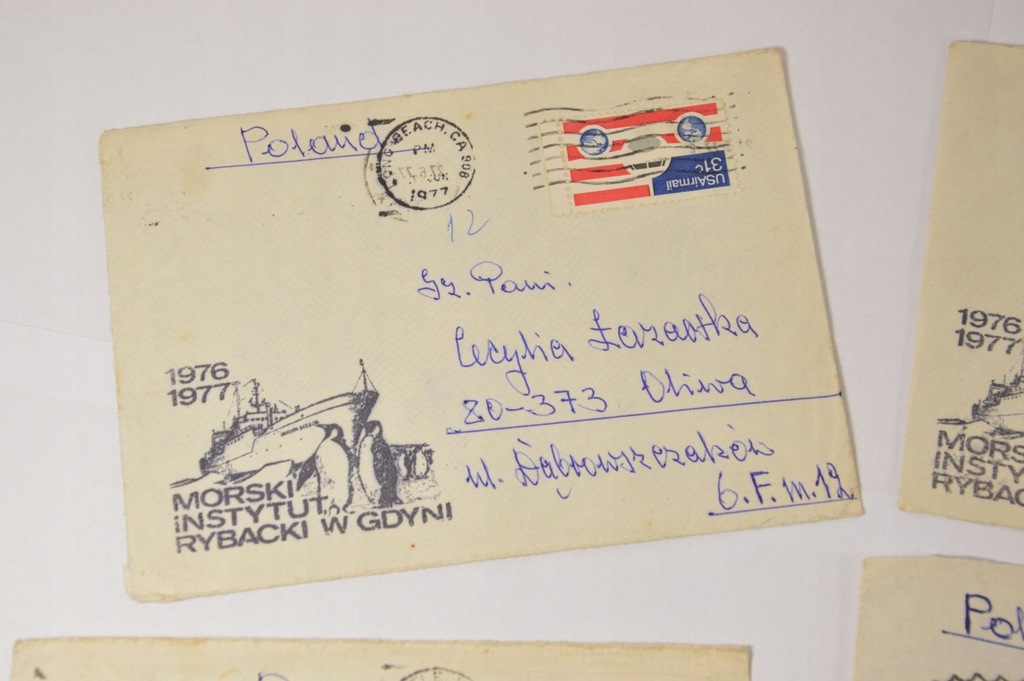 Poland
LONG BEACH, CA 908
PM
1977
USAirmail
31c
12
Sz. Pani.
Cecylia Łazarska
80-373 Oliwa
ul. Dąbrowszczaków
6.F.m.12
1976
1977
MORSKI
INSTYTUT
RYBACKI W GDYNI
1976
1977
MORS
INSTY
RYBAC
Pol